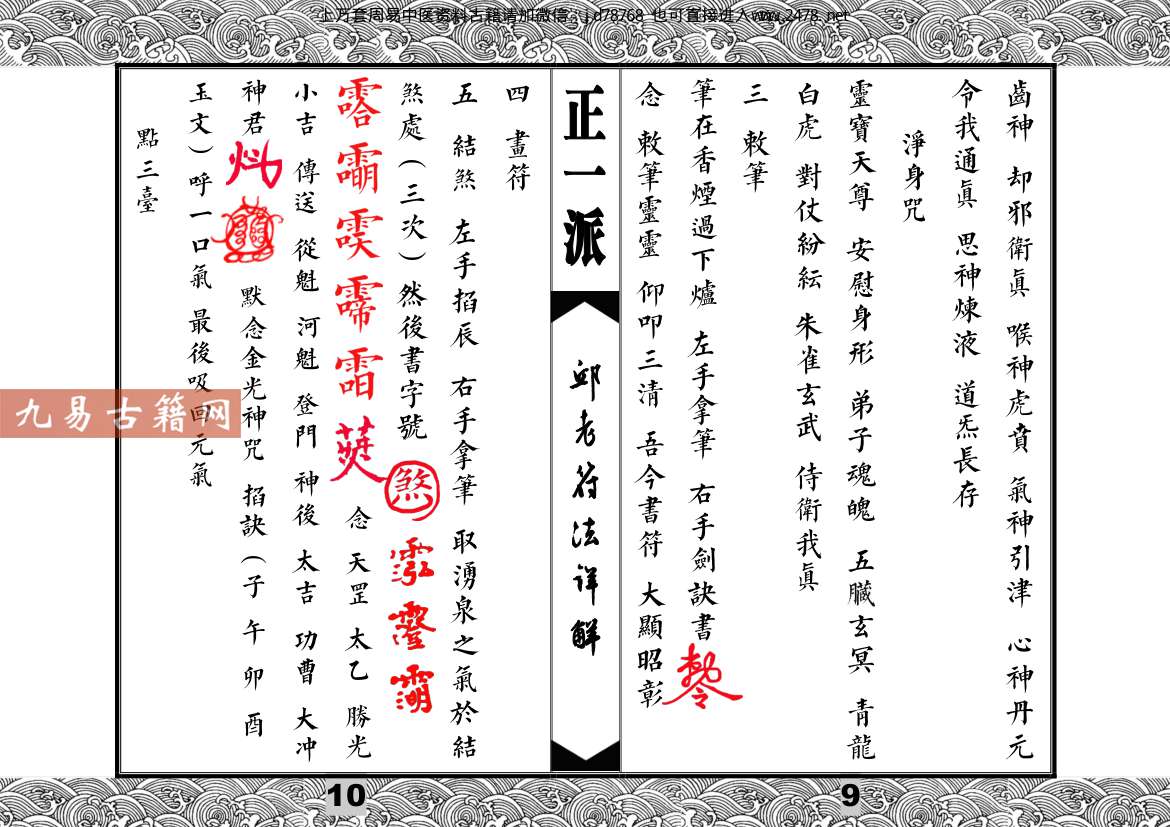 上万套周易中医资料古籍请加微信：jd78768 也可直接进入www.2478.net
齒神 却邪衛眞 喉神虎賁 氣神引津 心神丹元
令我通眞 思神煉液 道炁長存
淨身咒
靈寶天尊 安慰身形 弟子魂魄 五臟玄冥 青龍
白虎 對仗紛紜 朱雀玄武 侍衛我眞
三 敕筆
筆在香煙過下爐 左手拿筆 右手劍訣書
念 敕筆靈靈 仰叩三清 吾今書符 大顯昭彰
正一派
邱老符法详解
四 畫符
五 結煞 左手掐辰 右手拿筆 取湧泉之氣於結
煞處（三次）然後書字號 煞
念 天罡 太乙 勝光
小吉 傳送 從魁 河魁 登門 神後 太吉 功曹 大冲
神君 默念金光神咒 掐訣（子 午 卯 酉
玉文）呼一口氣 最後吸回元氣
點三臺
九易古籍网
10
9